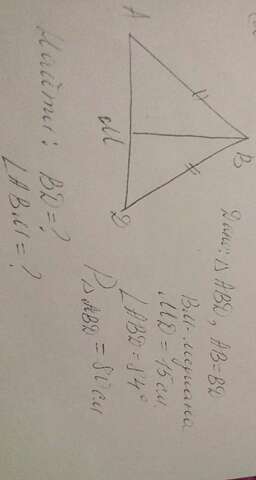 A
B
M
D
Дано: △ABD, AB=BD
BM - медиана
MD = 15 см
∠ABD = 84°
P△ABD = 80 см
Найти: BD=?
∠ABM=?